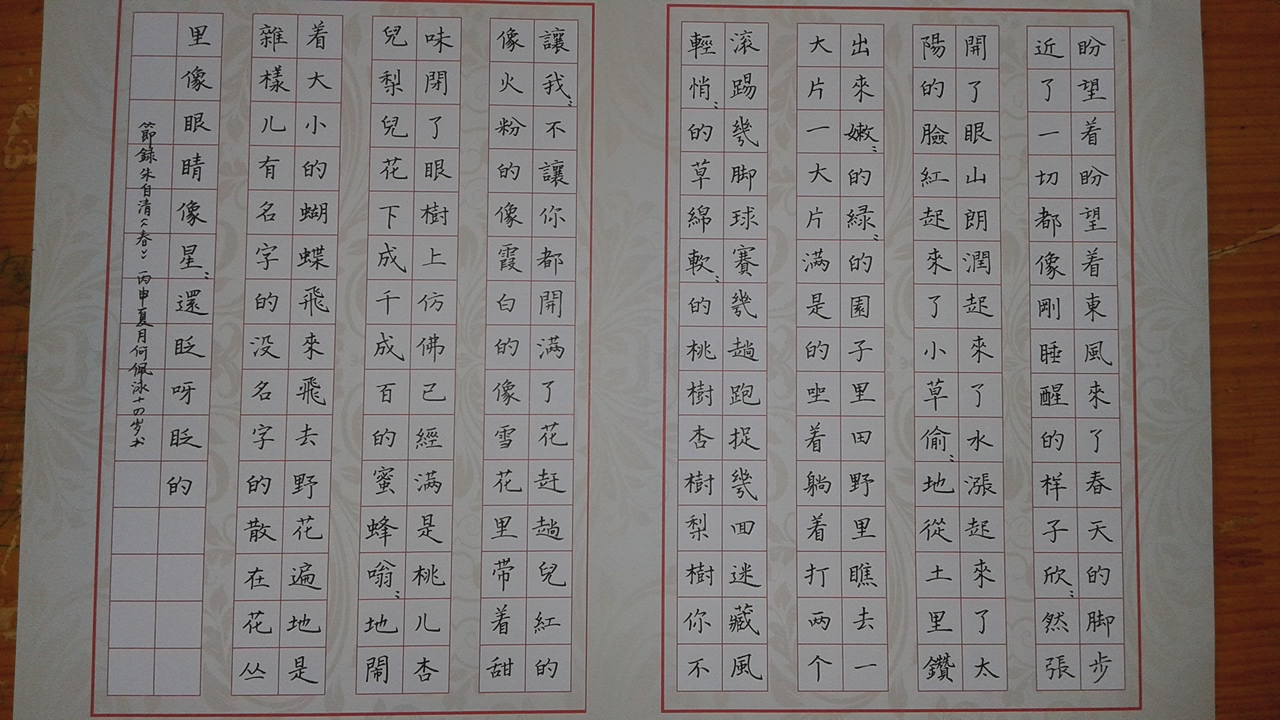 盼望着盼望着東風來了春天的脚步
近了一切都像剛睡醒的样子欣〻然張
開了眼山朗潤起來了水漲起來了太
陽的臉紅起來了小草偷〻地從土里鑽
出來嫩〻的緑〻的園子里田野里瞧去一
大片一大片满是的坐着躺着打两个
滚踢幾脚球賽幾趟跑捉幾回迷藏風
輕悄〻的草綿軟〻的桃樹杏樹梨樹你不
讓我〻不讓你都開满了花赶趟兒紅的
像火粉的像霞白的像雪花里带着甜
味閉了眼樹上仿佛已經满是桃儿杏
兒梨兒花下成千成百的蜜蜂嗡〻地鬧
着大小的蝴蝶飛來飛去野花遍地是
雜樣儿有名字的没名字的散在花丛
里像眼睛像星〻還眨呀眨的
節録朱自清《春》丙申夏月何佩泳十四岁书